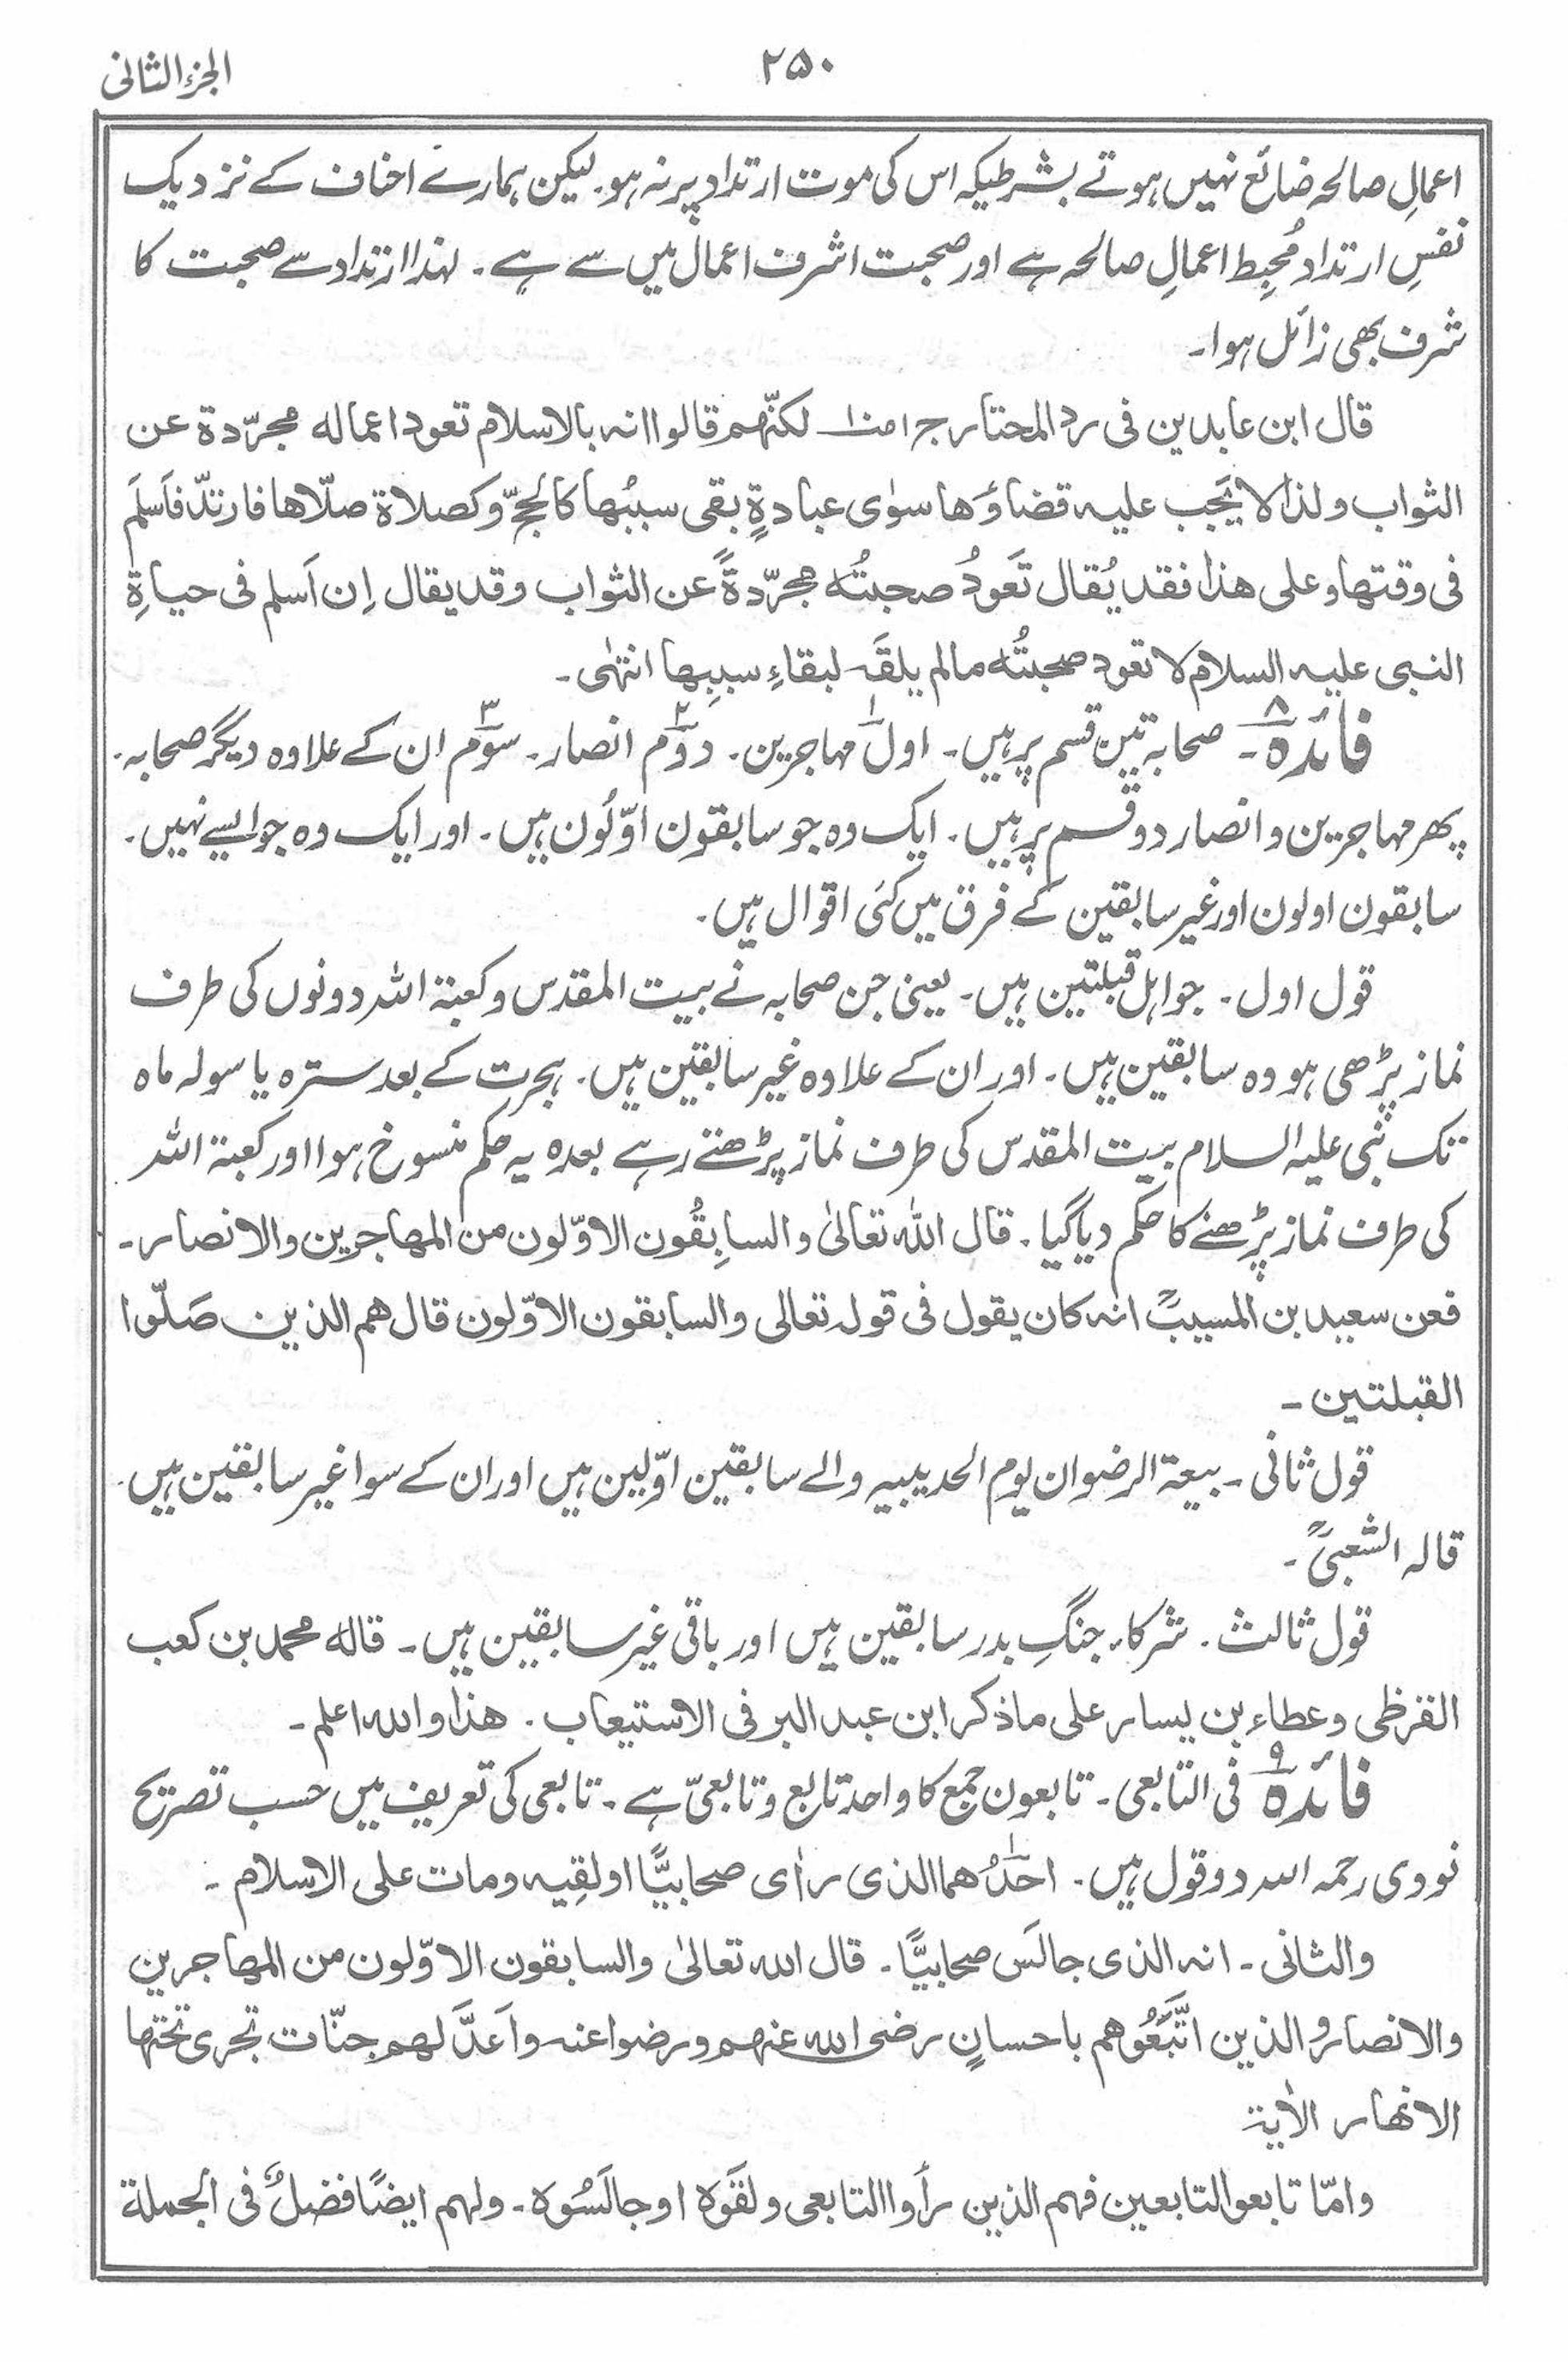 الجزء الثانی
۲۵۰
اعمالِ صالحہ ضائع نہیں ہوتے بشرطیکہ اس کی موت ارتداد پر نہ ہو۔ لیکن ہمارے احناف کے نزدیک
نفسِ ارتداد مُحبِط اعمالِ صالحہ ہے اور صحبت اشرف اعمال میں سے ہے۔ لہذا ارتداد سے صحبت کا
شرف بھی زائل ہوا۔
قال ابن عابدین فی رد المحتار ج۱ لکنّھم قالوا انہ بالاسلام تعود اعمالہ مجرّدة عن
الثواب ولذا لا یَجب علیہ قضاؤَھا سوٰی عبادةٍ بقی سببُھا کالحجّ وکصلاة صلّاھا فارتدّ فاَسلَمَ
فی وقتھا وعلی ھذا فقد یُقال تَعَودُ صحبتُہ مجرّدةً عن الثواب وقد یقال اِن اَسلم فی حیاةِ
النبی علیہ السلام لا تعود صحبتُہ مالم یلقَہ لبقاءِ سببِھا انتھٰی۔
فائدہ ۸۔ صحابہ تین قسم پر ہیں۔ اول ۱ مہاجرین۔ دوّم ۲ انصار۔ سوّم ۳ ان کے علاوہ دیگر صحابہ۔
پھر مہاجرین و انصار دو قسم پر ہیں۔ ایک وہ جو سابقون اوّلُون ہیں۔ اور ایک وہ جو ایسے نہیں۔
سابقون اولون اور غیر سابقین کے فرق میں کئی اقوال ہیں۔
قول اول۔ جو اہل قبلتین ہیں۔ یعنی جن صحابہ نے بیت المقدس و کعبۃ اللہ دونوں کی طرف
نماز پڑھی ہو وہ سابقین ہیں۔ اور ان کے علاوہ غیر سابقین ہیں۔ ہجرت کے بعد سترہ یا سولہ ماہ
تک نبی علیہ السلام بیت المقدس کی طرف نماز پڑھتے رہے بعدہ یہ حکم منسوخ ہوا اور کعبۃ اللہ
کی طرف نماز پڑھنے کا حکم دیا گیا۔ قال اللہ تعالیٰ والسابِقُون الاوّلون من المھاجرین والانصار۔
فعن سعید بن المسیبؒ انہ کان یقول فی قولہ تعالی والسابقون الاوّلون قال ھم الذین صَلّوا
القبلتین۔
قول ثانی۔ بیعۃ الرضوان یوم الحدیبیہ والے سابقین اوّلین ہیں اور ان کے سوا غیر سابقین ہیں۔
قالہ الشعبیؒ۔
قول ثالث۔ شرکاء جنگِ بدر سابقین ہیں اور باقی غیر سابقین ہیں۔ قالہ محمد بن کعب
القرظی وعطاء بن یسار علی ما ذکر ابن عبد البر فی الاستیعاب۔ ھذا واللہ اعلم۔
فائدہ ۹ فی التابعی۔ تابعون جمع کا واحد تابع و تابعیّ ہے۔ تابعی کی تعریف میں حسب تصریح
نووی رحمہ اللہ دو قول ہیں۔ احدُھما الذی رأی صحابیًّا او لقِیہ ومات علی الاسلام۔
والثانی۔ انہ الذی جالَس صحابیًّا۔ قال اللہ تعالیٰ والسابقون الاوّلون من المھاجرین
والانصار والذین اتَّبَعُوھم باحسانٍ رضی اللہ عنہم ورضوا عنہ واَعدَّ لہم جنّات تجری تحتھا
الانھار الاٰیۃ
وامّا تابعو التابعین فہم الذین رأَوا التابعی ولقَوہ او جالَسُوہ۔ ولہم ایضًا فضلٌ فی الجملة